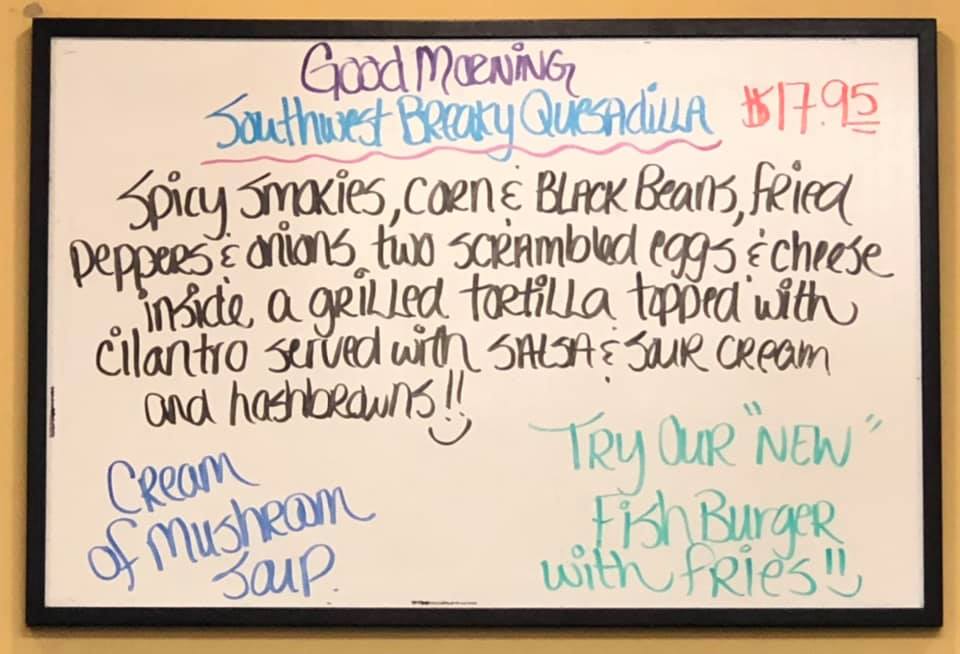 Good Morning
Southwest Breaky Quesadilla $17.95
Spicy Smokies, Corn & Black Beans, fried
peppers & onions two scrambled eggs & cheese
inside a grilled tortilla topped with
cilantro served with SALSA & Sour cream
and hashbrowns!!
Cream
of Mushroom
Soup.
Try Our "NEW"
Fish Burger
with fries!!